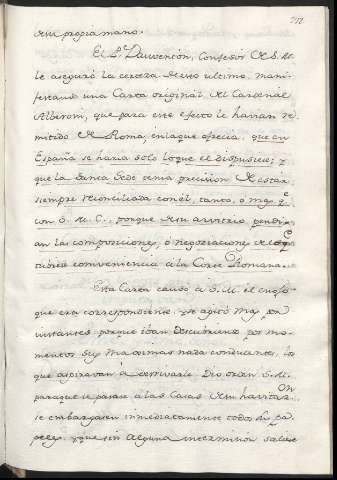 su propia mano.
El P.e Dauventon, Confesor de S. M.
le aseguró la certeza de esto ultimo, mani-
festando una Carta original del Cardenal
Alberoni, que para este efecto le havian re-
mitido de Roma, en la que ofrecia, que en
España se haria solo lo que el dispusiese; y
que la Santa Sede tenia precision de estar
siempre reconciliada con el, tanto, o mas q.e
con S. M. C., porque de su arvitrio pendi-
an las composiciones, ó negociaciones de
conveniencia á la Corte Romana.
Esta Carta causó á S. M. el enojo
que era correspondiente, y se agitó mas por
instantes porque iban descubriendo por mo-
mentos sus maximas nada conducentes, á lo
que aspiravan á derrivarle. Dio orden S. M.
para que se pasase á las Casas de su havitac.on
se embargasen inmediatamente todos sus pa-
peles, y que sin alguna intermision saliese